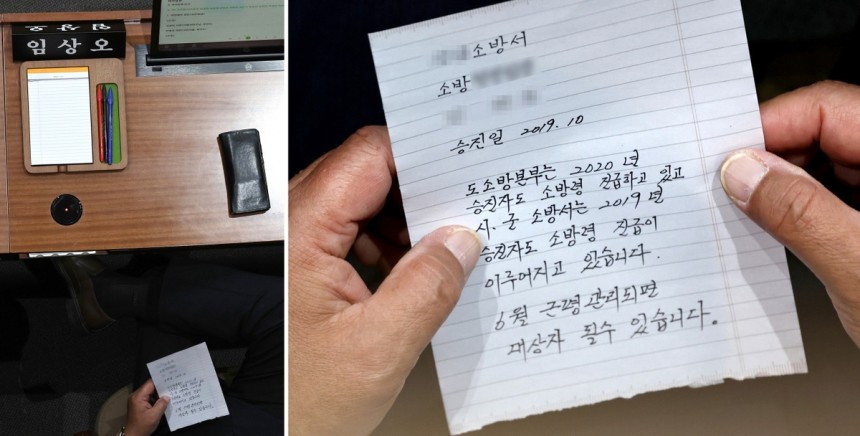 임상오
소방서
소방
승진일 2019. 10
도소방본부는 2020년
승진자도 소방령 진급하고 있고
시·군 소방서는 2019년
승진자도 소방령 진급이
이루어지고 있습니다.
6월 근평관리되면
대상자 될수 있습니다.